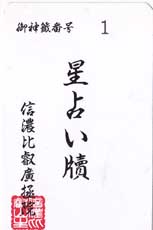 御神籤番号 1
星占い牘
信濃比叡廣拯院